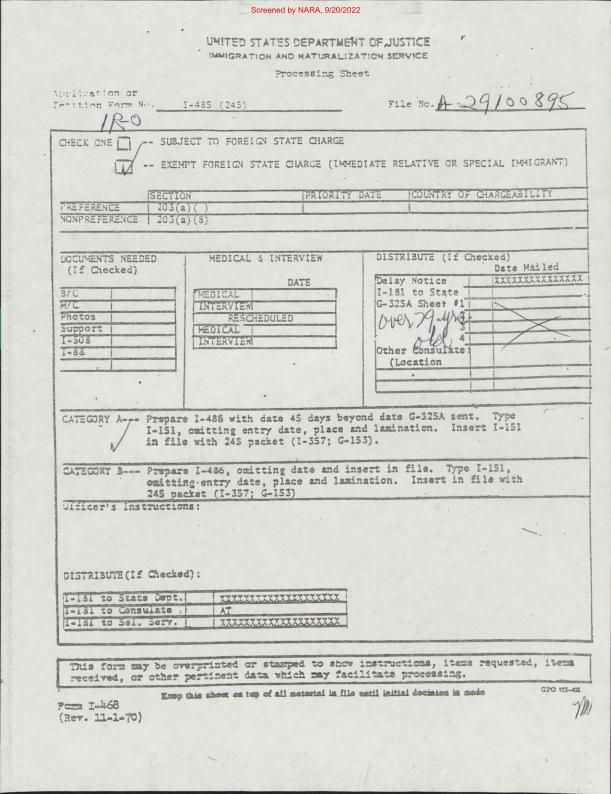 Screened by NARA, 9/20/2022
UNITED STATES DEPARTMENT OF JUSTICE
IMMIGRATION AND NATURALIZATION SERVICE
Processing Sheet
Application or
Petition Form No. I-485 (245) File No. A-29100895
IR-0
CHECK ONE -- SUBJECT TO FOREIGN STATE CHARGE
-- EXEMPT FOREIGN STATE CHARGE (IMMEDIATE RELATIVE OR SPECIAL IMMIGRANT)
SECTION PRIORITY DATE COUNTRY OF CHARGEABILITY
PREFERENCE 203(a)( )
NONPREFERENCE 203(a)(8)
DOCUMENTS NEEDED
(If Checked)
B/C
M/C
Photos
Support
I-508
I-88
MEDICAL & INTERVIEW
DATE
MEDICAL
INTERVIEW
RESCHEDULED
MEDICAL
INTERVIEW
DISTRIBUTE (If Checked)
Date Mailed
Delay Notice XXXXXXXXXXXXXXX
I-181 to State
G-325A Sheet #1
over 29 yrs
3
old 4
Other Consulate:
(Location
CATEGORY A--- Prepare I-486 with date 45 days beyond date G-325A sent. Type
I-151, omitting entry date, place and lamination. Insert I-151
in file with 245 packet (I-357; G-153).
CATEGORY B--- Prepare I-486, omitting date and insert in file. Type I-151,
omitting entry date, place and lamination. Insert in file with
245 packet (I-357; G-153)
Officer's Instructions:
DISTRIBUTE(If Checked):
I-181 to State Dept. XXXXXXXXXXXXXXXXXXXX
I-181 to Consulate AT
I-181 to Sel. Serv. XXXXXXXXXXXXXXXXXXXX
This form may be overprinted or stamped to show instructions, items requested, items
received, or other pertinent data which may facilitate processing.
Keep this sheet on top of all material in file until initial decision is made
GPO
Form I-468
(Rev. 11-1-70)